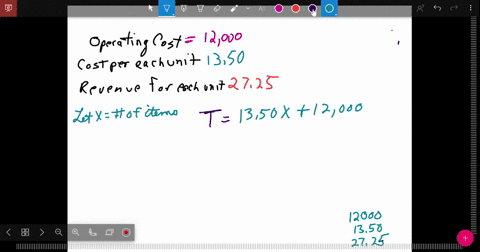 Operating Cost = 12,000
Cost per each unit 13.50
Revenue for each unit 27.25
Let X = # of items
T = 13.50X + 12,000
12000
13.50
27.25